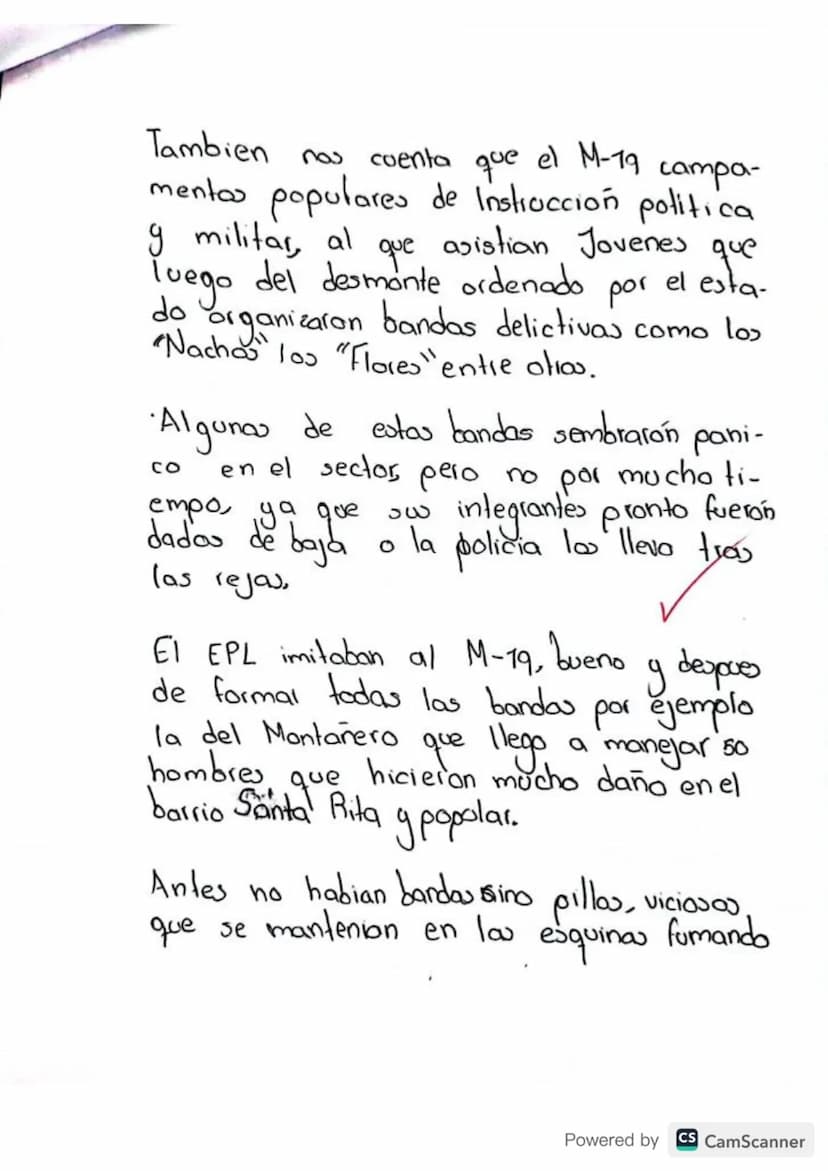 Tambien nos cuenta que el M-19 campa-
mentos populares de Instrucción politica
y militar, al que asistian Jovenes que
luego del desmonte ordenado por el esta-
do organizaron bandas delictivas como los
"Nachos" los "Flores" entre otros.
Algunas de estas bandas sembrarón pani-
co en el sector, pero no por mucho ti-
empo, ya que sus integrantes pronto fuerón
dados de baja o la policia los llevo tras
las rejas.
El EPL imitaban al M-19, bueno y despues
de formar todas las bandas por ejemplo
la del Montañero que llego a manejar 50
hombres que hicieron mucho daño en el
barrio Santa Rita y popular.
Antes no habian bandas sino pillos, viciosos
que se mantenion en las esquinas fumando
Powered by CS CamScanner